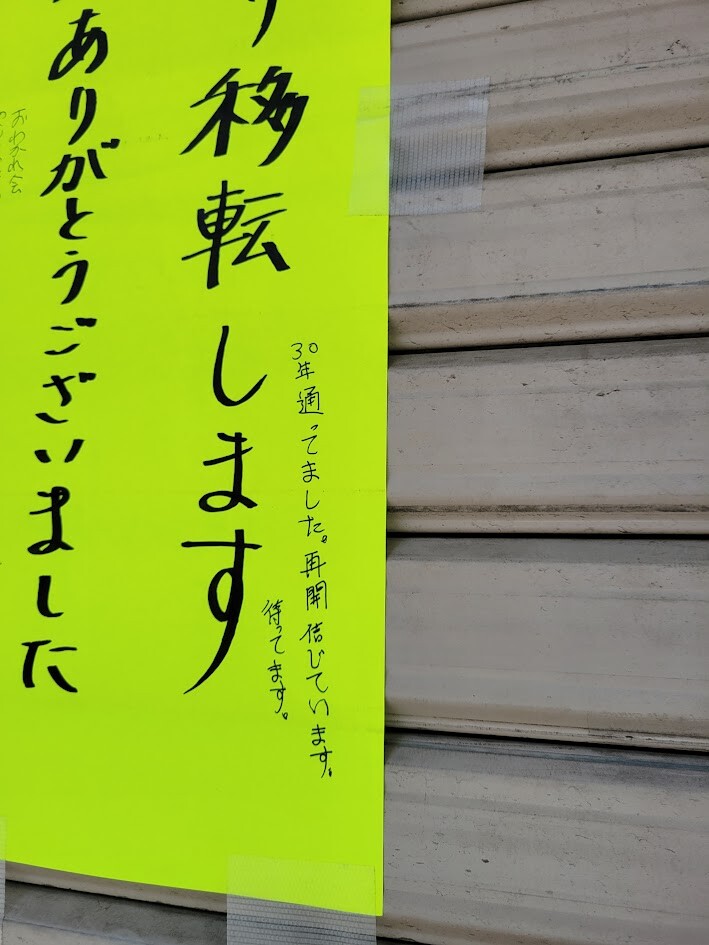 り移転します
30年通ってました。再開信じています。
待ってます。
ありがとうございました
おわかれ会